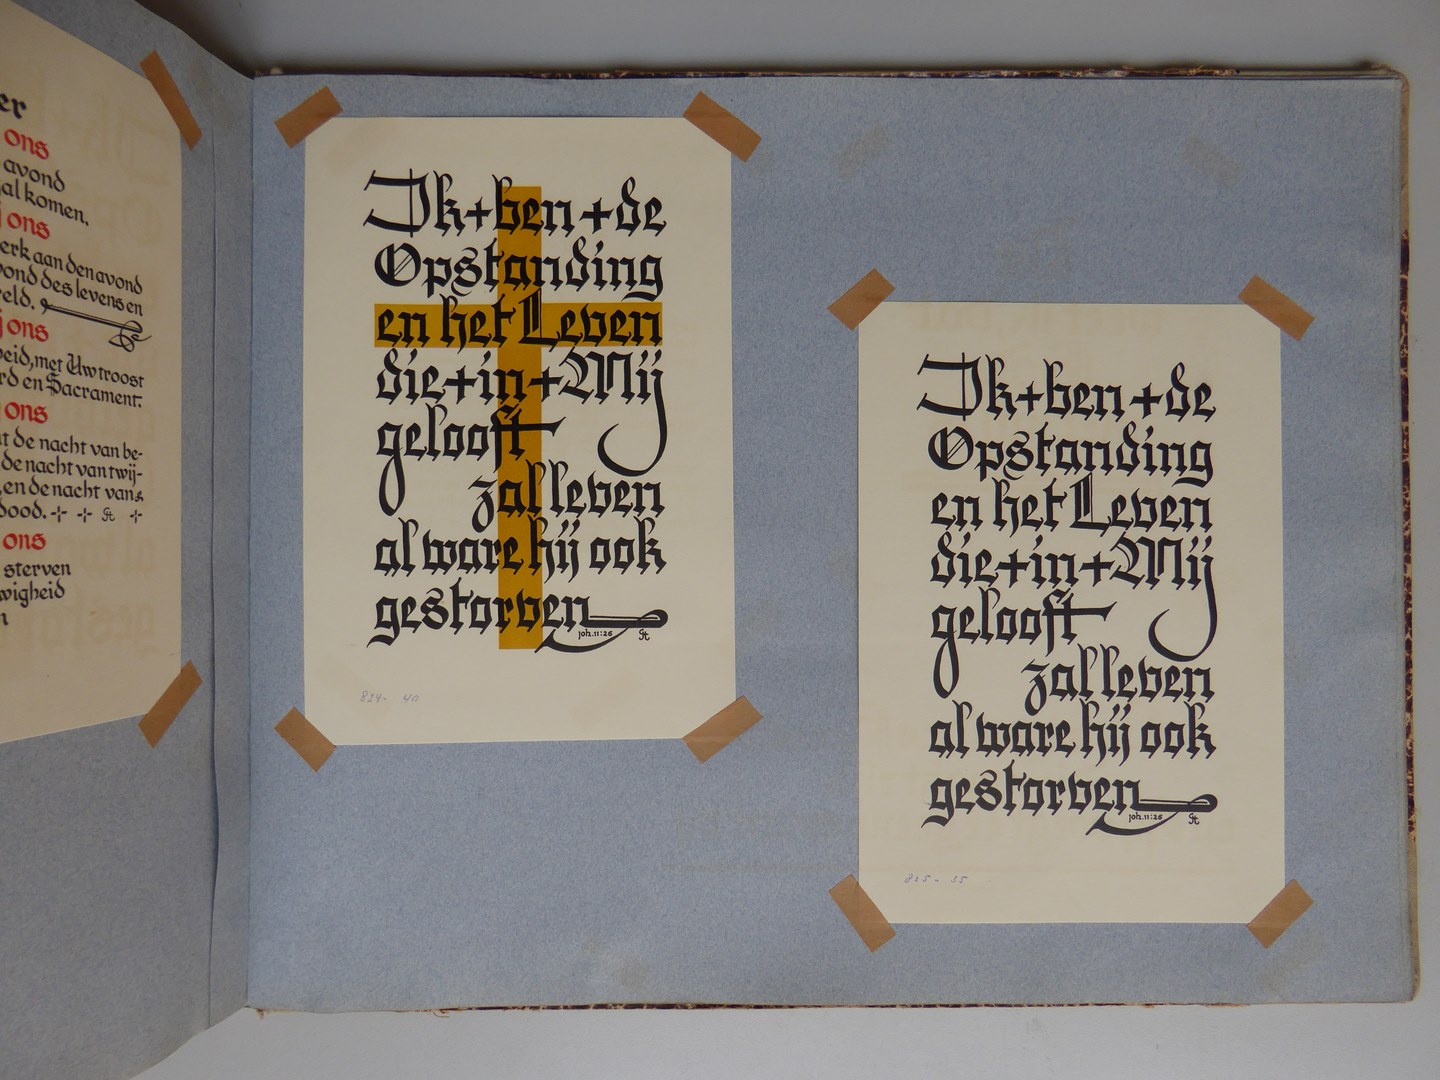 er
ons
avond
al komen.
j ons
erk aan den avond
vond des levens en
reld.
j ons
heid, met Uw troost
rd en Sacrament.
ons
t de nacht van be-
de nacht van twij-
, en de nacht van
dood. + + St +
ons
sterven
wigheid
n
Ik + ben + de
Opstanding
en het Leven
die + in + Mij
gelooft
zal leven
al ware hij ook
gestorven
joh. 11:26 St
824- 40
Ik + ben + de
Opstanding
en het Leven
die + in + Mij
gelooft
zal leven
al ware hij ook
gestorven
joh. 11:26 St
825- 35